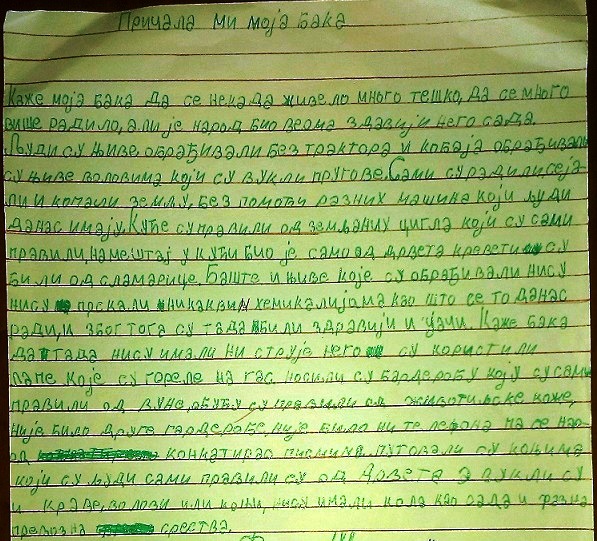 Причала ми моја бака
Каже моја бака да се некада живело много тешко, да се много
више радило, али је народ био веома здавији него сада.
Људи су њиве обрађивали без трактора и копаја обрађивали
су њиве воловима који су вукли пругове. Сами су радили сеја-
ли и копали земљу, без помоћи разних машина који људи
данас имају. Куће су правили од земљаних цигла који су сами
правили, намештај у кући био је само од дрвета кревети су
били од сламарице. Баште и њиве које су обрађивали нису
нису прскали никаквим хемикалијама као што се то данас
ради, и због тога су тада били здравији и јачи. Каже бака
да тада нису имали ни струје него су користили
лапе које су гореле на гас. носили су гардеробу коју су сами
правили од вуне, обућу су правили од животињске коже,
није било друге гардеробе, није било ни телефона па се нар-
од контактирао писмима. путовали су коњима
који су људи сами правили су од дрвета а вукли су
и краве, волови или коњи, нису имали кола као сада и разна
превозна средства.